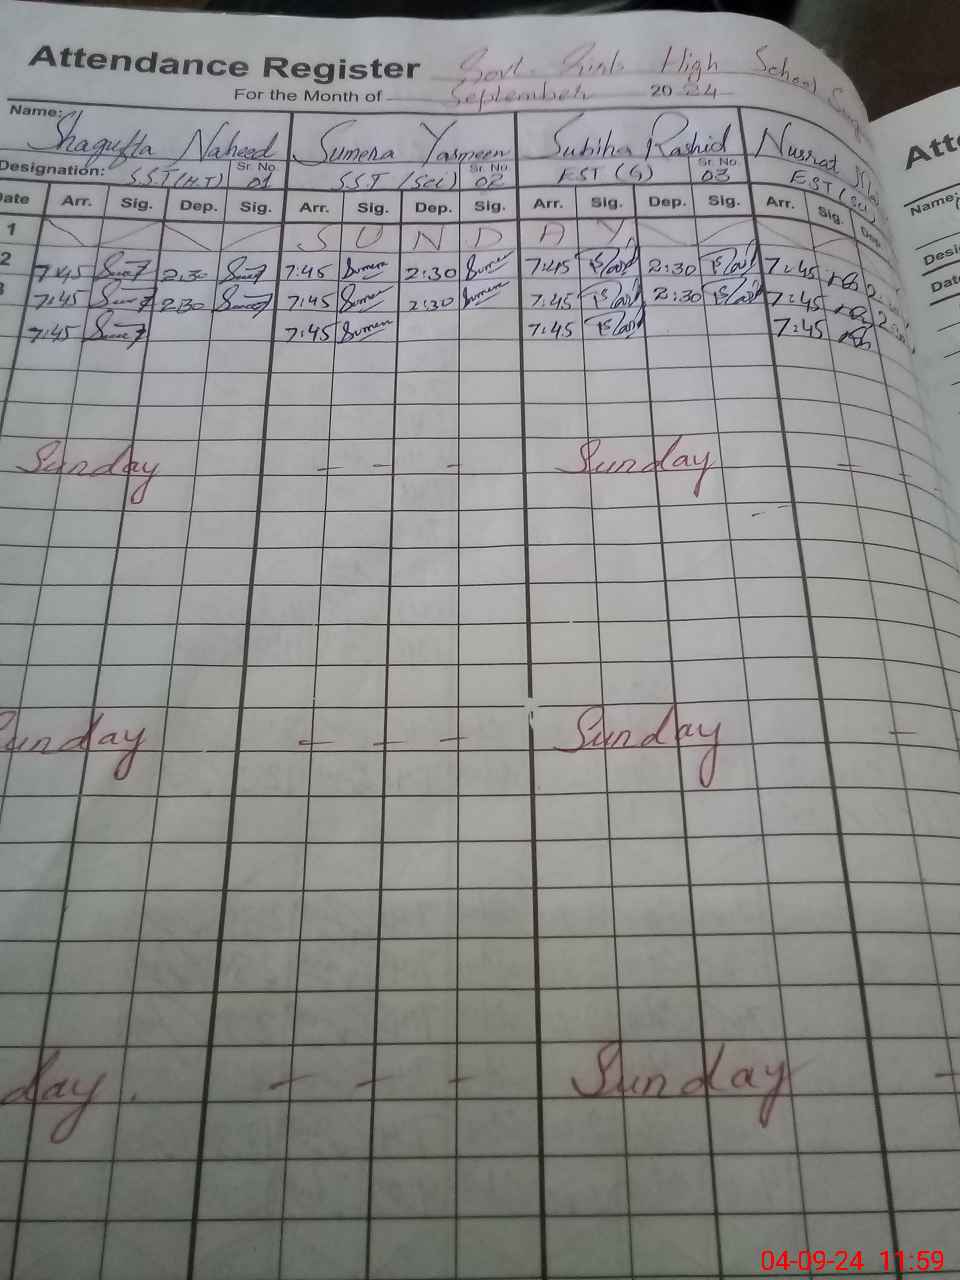 Attendance Register Govt. Girls High School
For the Month of September 2024 Atte
Name: Shagufta Naheed Sumera Yasmeen Subiha Rashid Nusrat Name:
Designation: S.S.T (H.T) Sr. No. 01 S.S.T (Sci) Sr. No. 02 EST (G) Sr. No. 03 EST (Sci) Desi
Date Arr. Sig. Dep. Sig. Arr. Sig. Dep. Sig. Arr. Sig. Dep. Sig. Arr. Sig. Dep. Date
1 S U N D A Y
2 7:45 2:30 7:45 Sumera 2:30 Sumera 7:45 2:30 7:45
3 7:45 2:30 7:45 Sumera 2:30 Sumera 7:45 2:30 7:45
7:45 7:45 Sumera 7:45 7:45
Sunday - - - Sunday -
Sunday - - - Sunday -
day - - - Sunday -
04-09-24 11:59